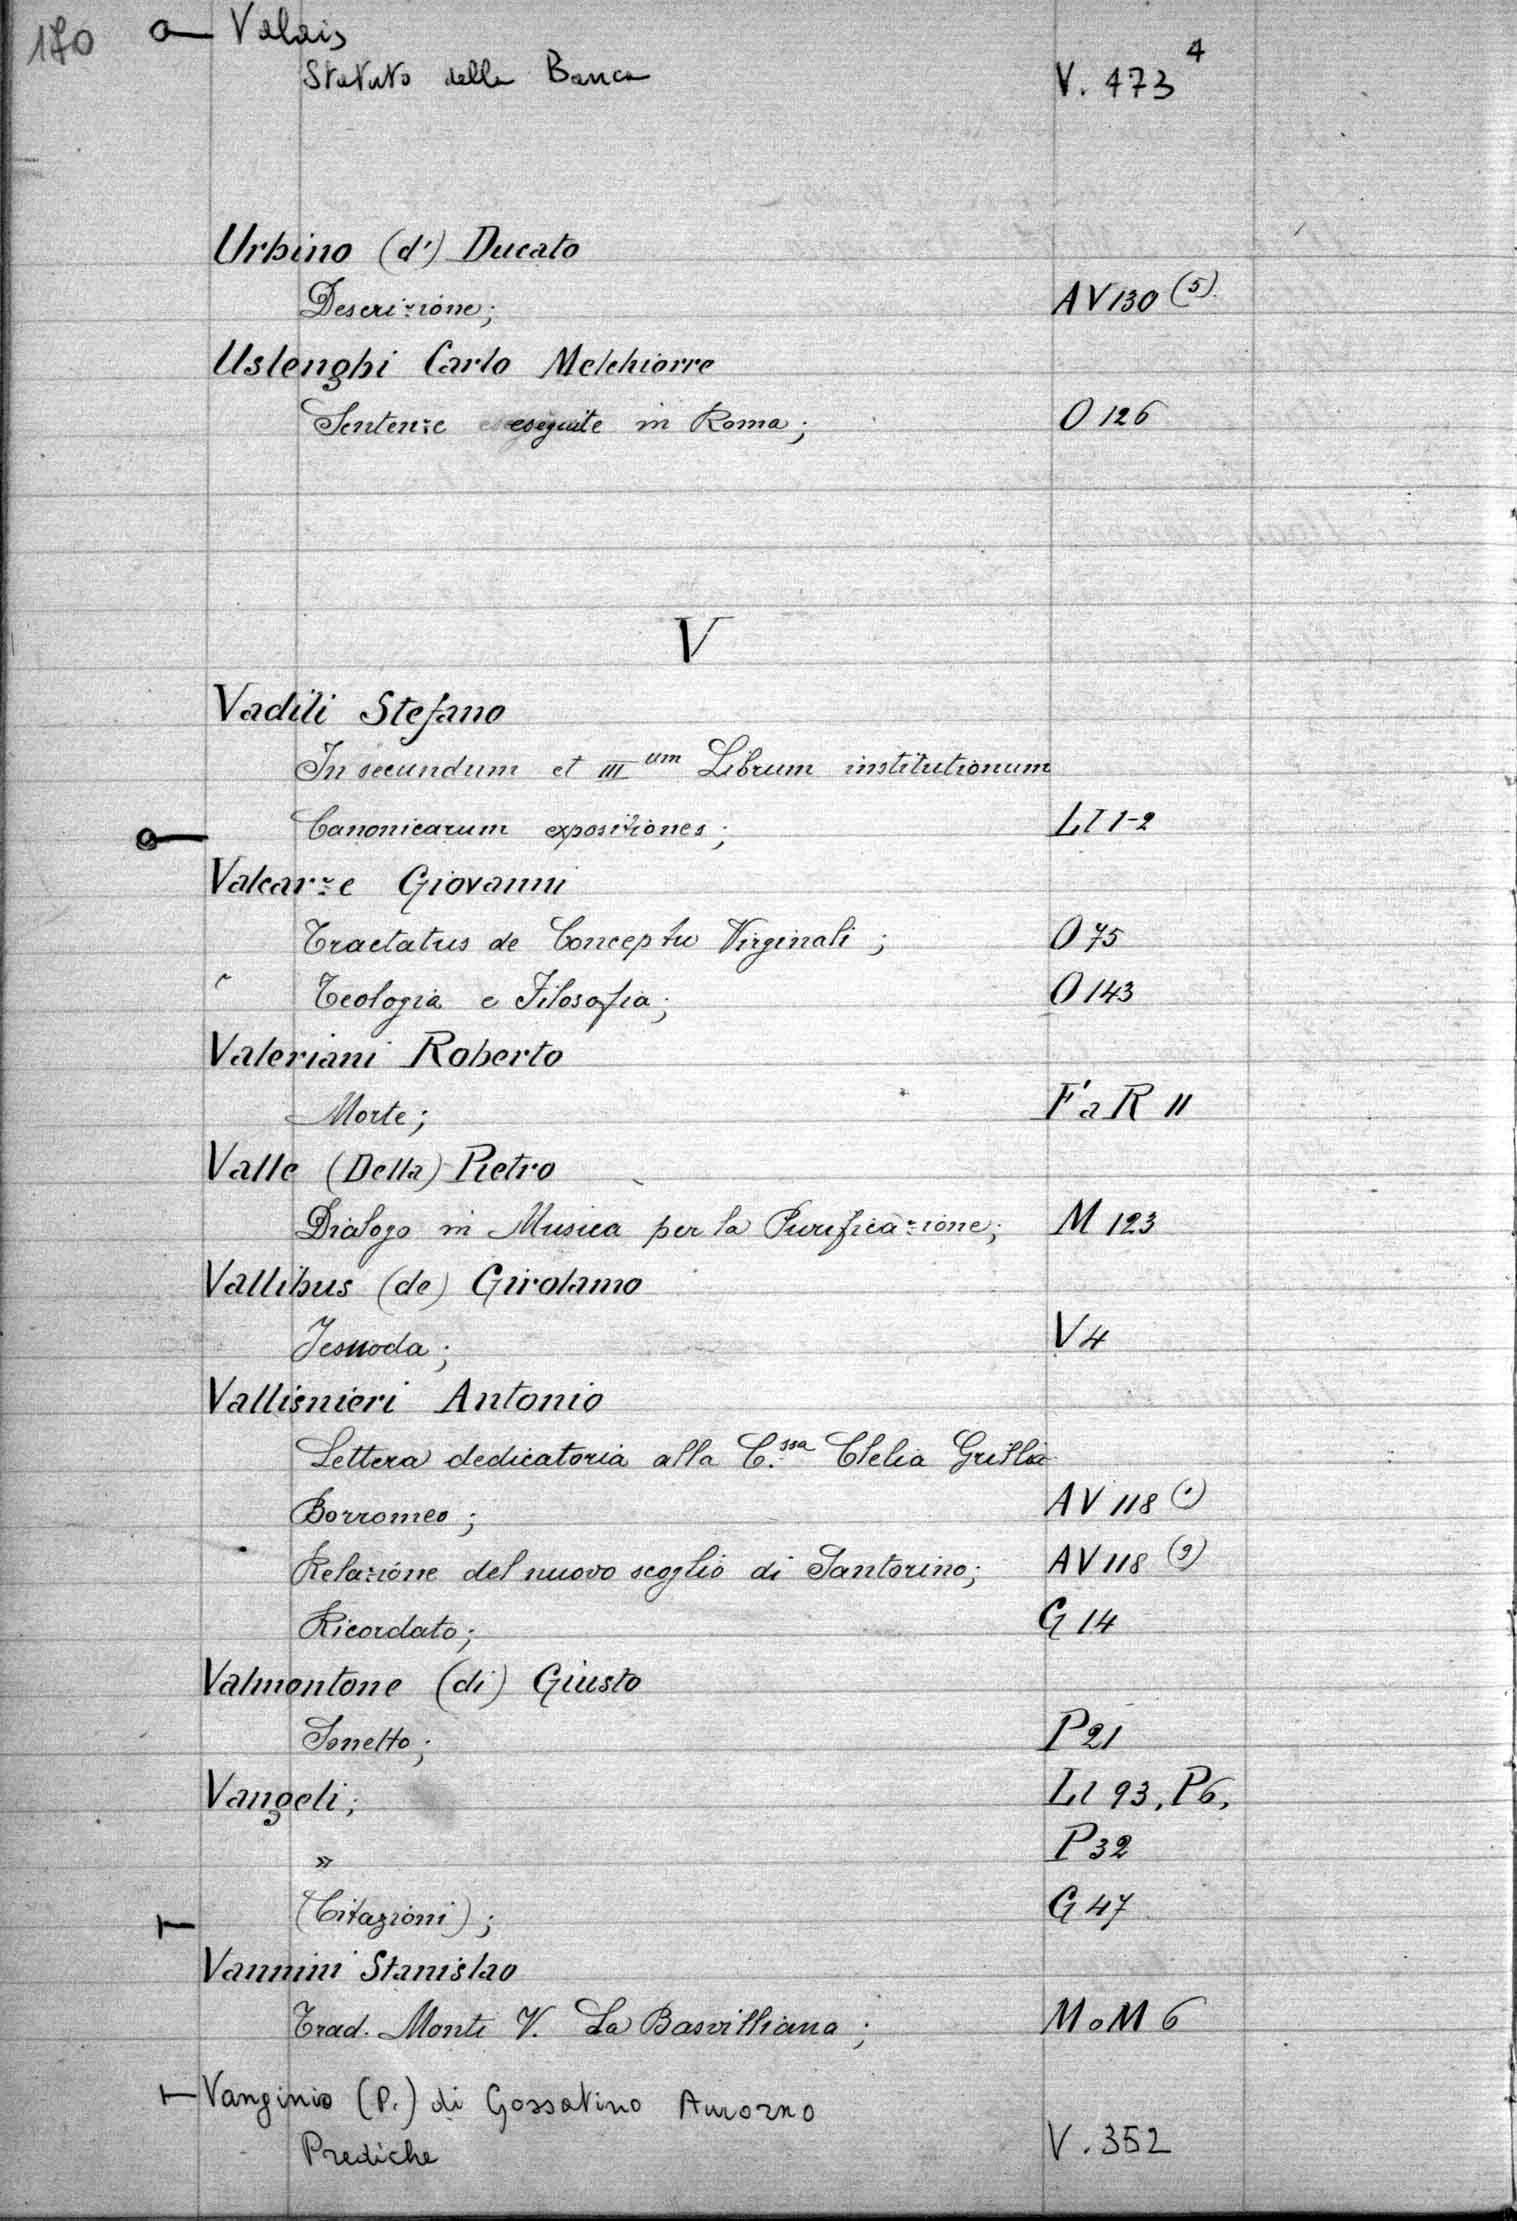 170
Valais
Statuto della Banca V. 473 4
Urbino (d') Ducato
Descrizione; AV 130 (5)
Uslenghi Carlo Melchiorre
Sentenze eseguite in Roma; O 126
V
Vadili Stefano
In secundum et III um Librum institutionum
Canonicarum expositiones; LT 1-2
Valcarze Giovanni
Tractatus de Conceptu Virginali; O 75
Teologia e Filosofia; O 143
Valeriani Roberto
Morte; F a R 11
Valle (Della) Pietro
Dialogo in Musica per la Purificazione; M 123
Vallibus (de) Girolamo
Jesuoda; V 4
Vallisnieri Antonio
Lettera dedicatoria alla C.ssa Clelia Grillia
Borromeo; AV 118 (1)
Relazione del nuovo scoglio di Santorino; AV 118 (9)
Ricordato; G 14
Valmontone (di) Giusto
Sonetto; P 21
Vangeli; Lt 93, P6,
» P 32
(Citazioni); G 47
Vannini Stanislao
Trad. Monti V. La Basvilliana; M o M 6
Vanginio (P.) di
Prediche V. 352